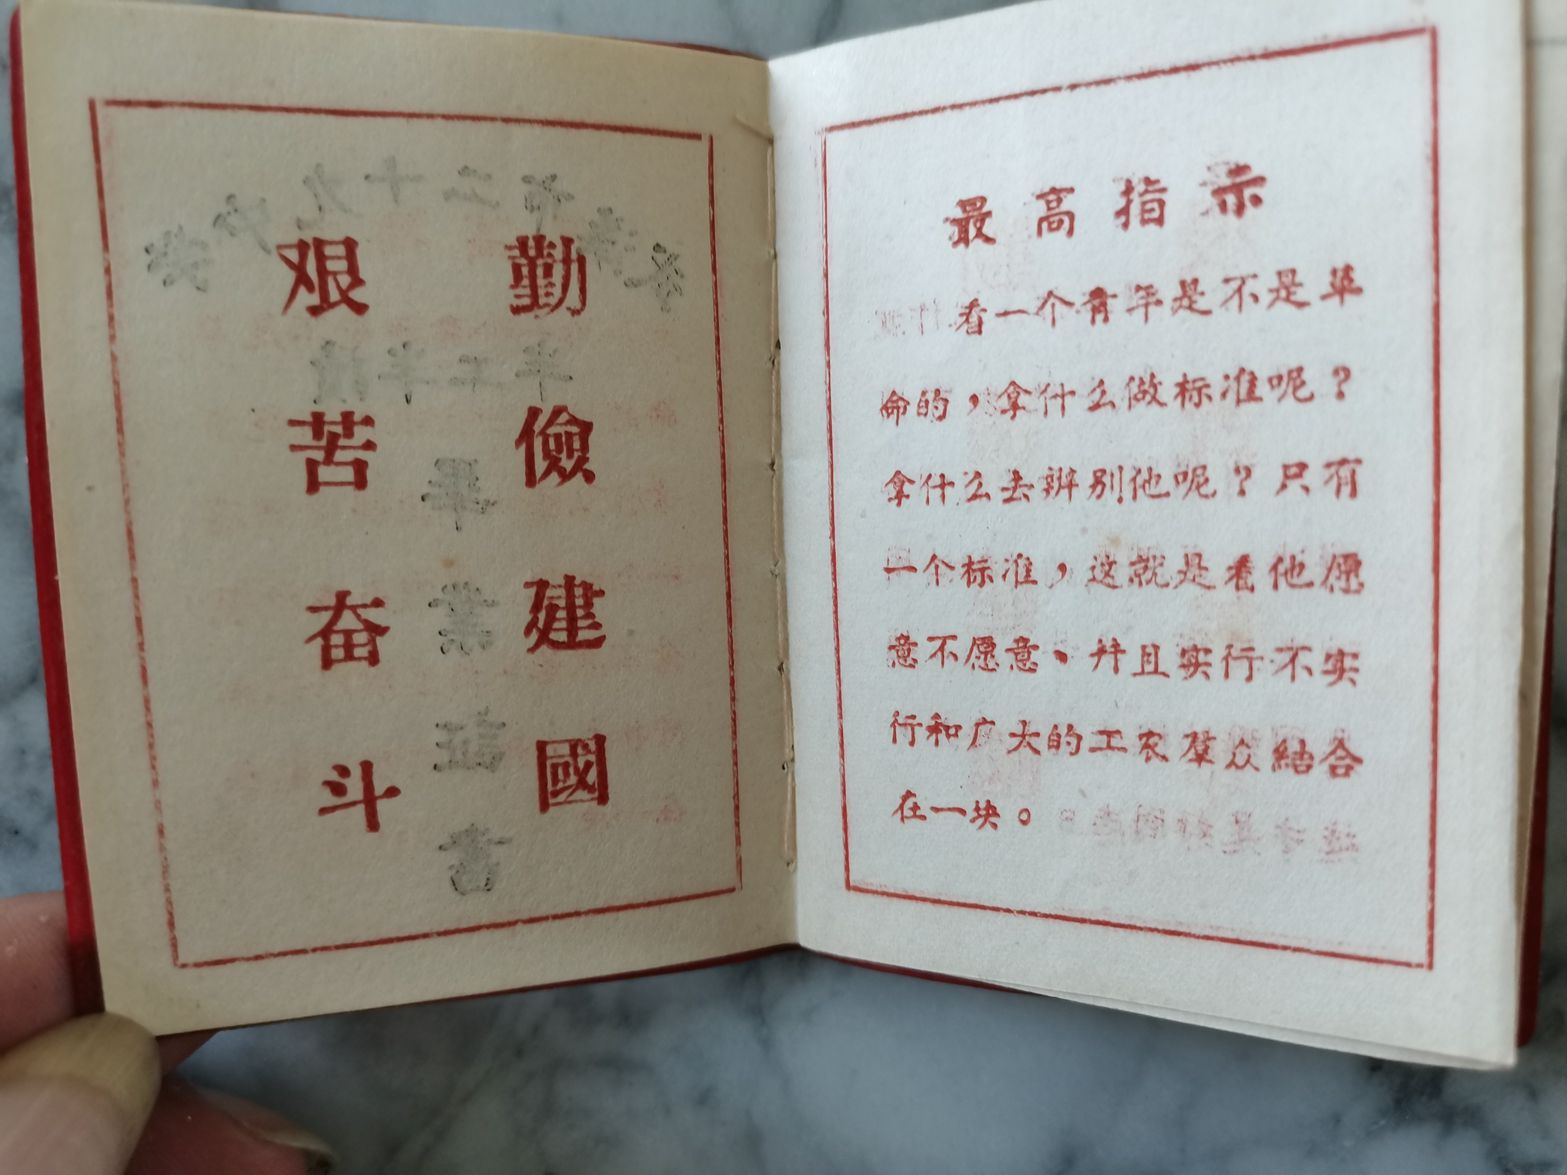 勤儉建國
艰苦奋斗
半工半讀
畢業証書
最高指示
看一个青年是不是革
命的，拿什么做标准呢？
拿什么去辨别他呢？只有
一个标准，这就是看他愿
意不愿意、并且实行不实
行和广大的工农羣众結合
在一块。